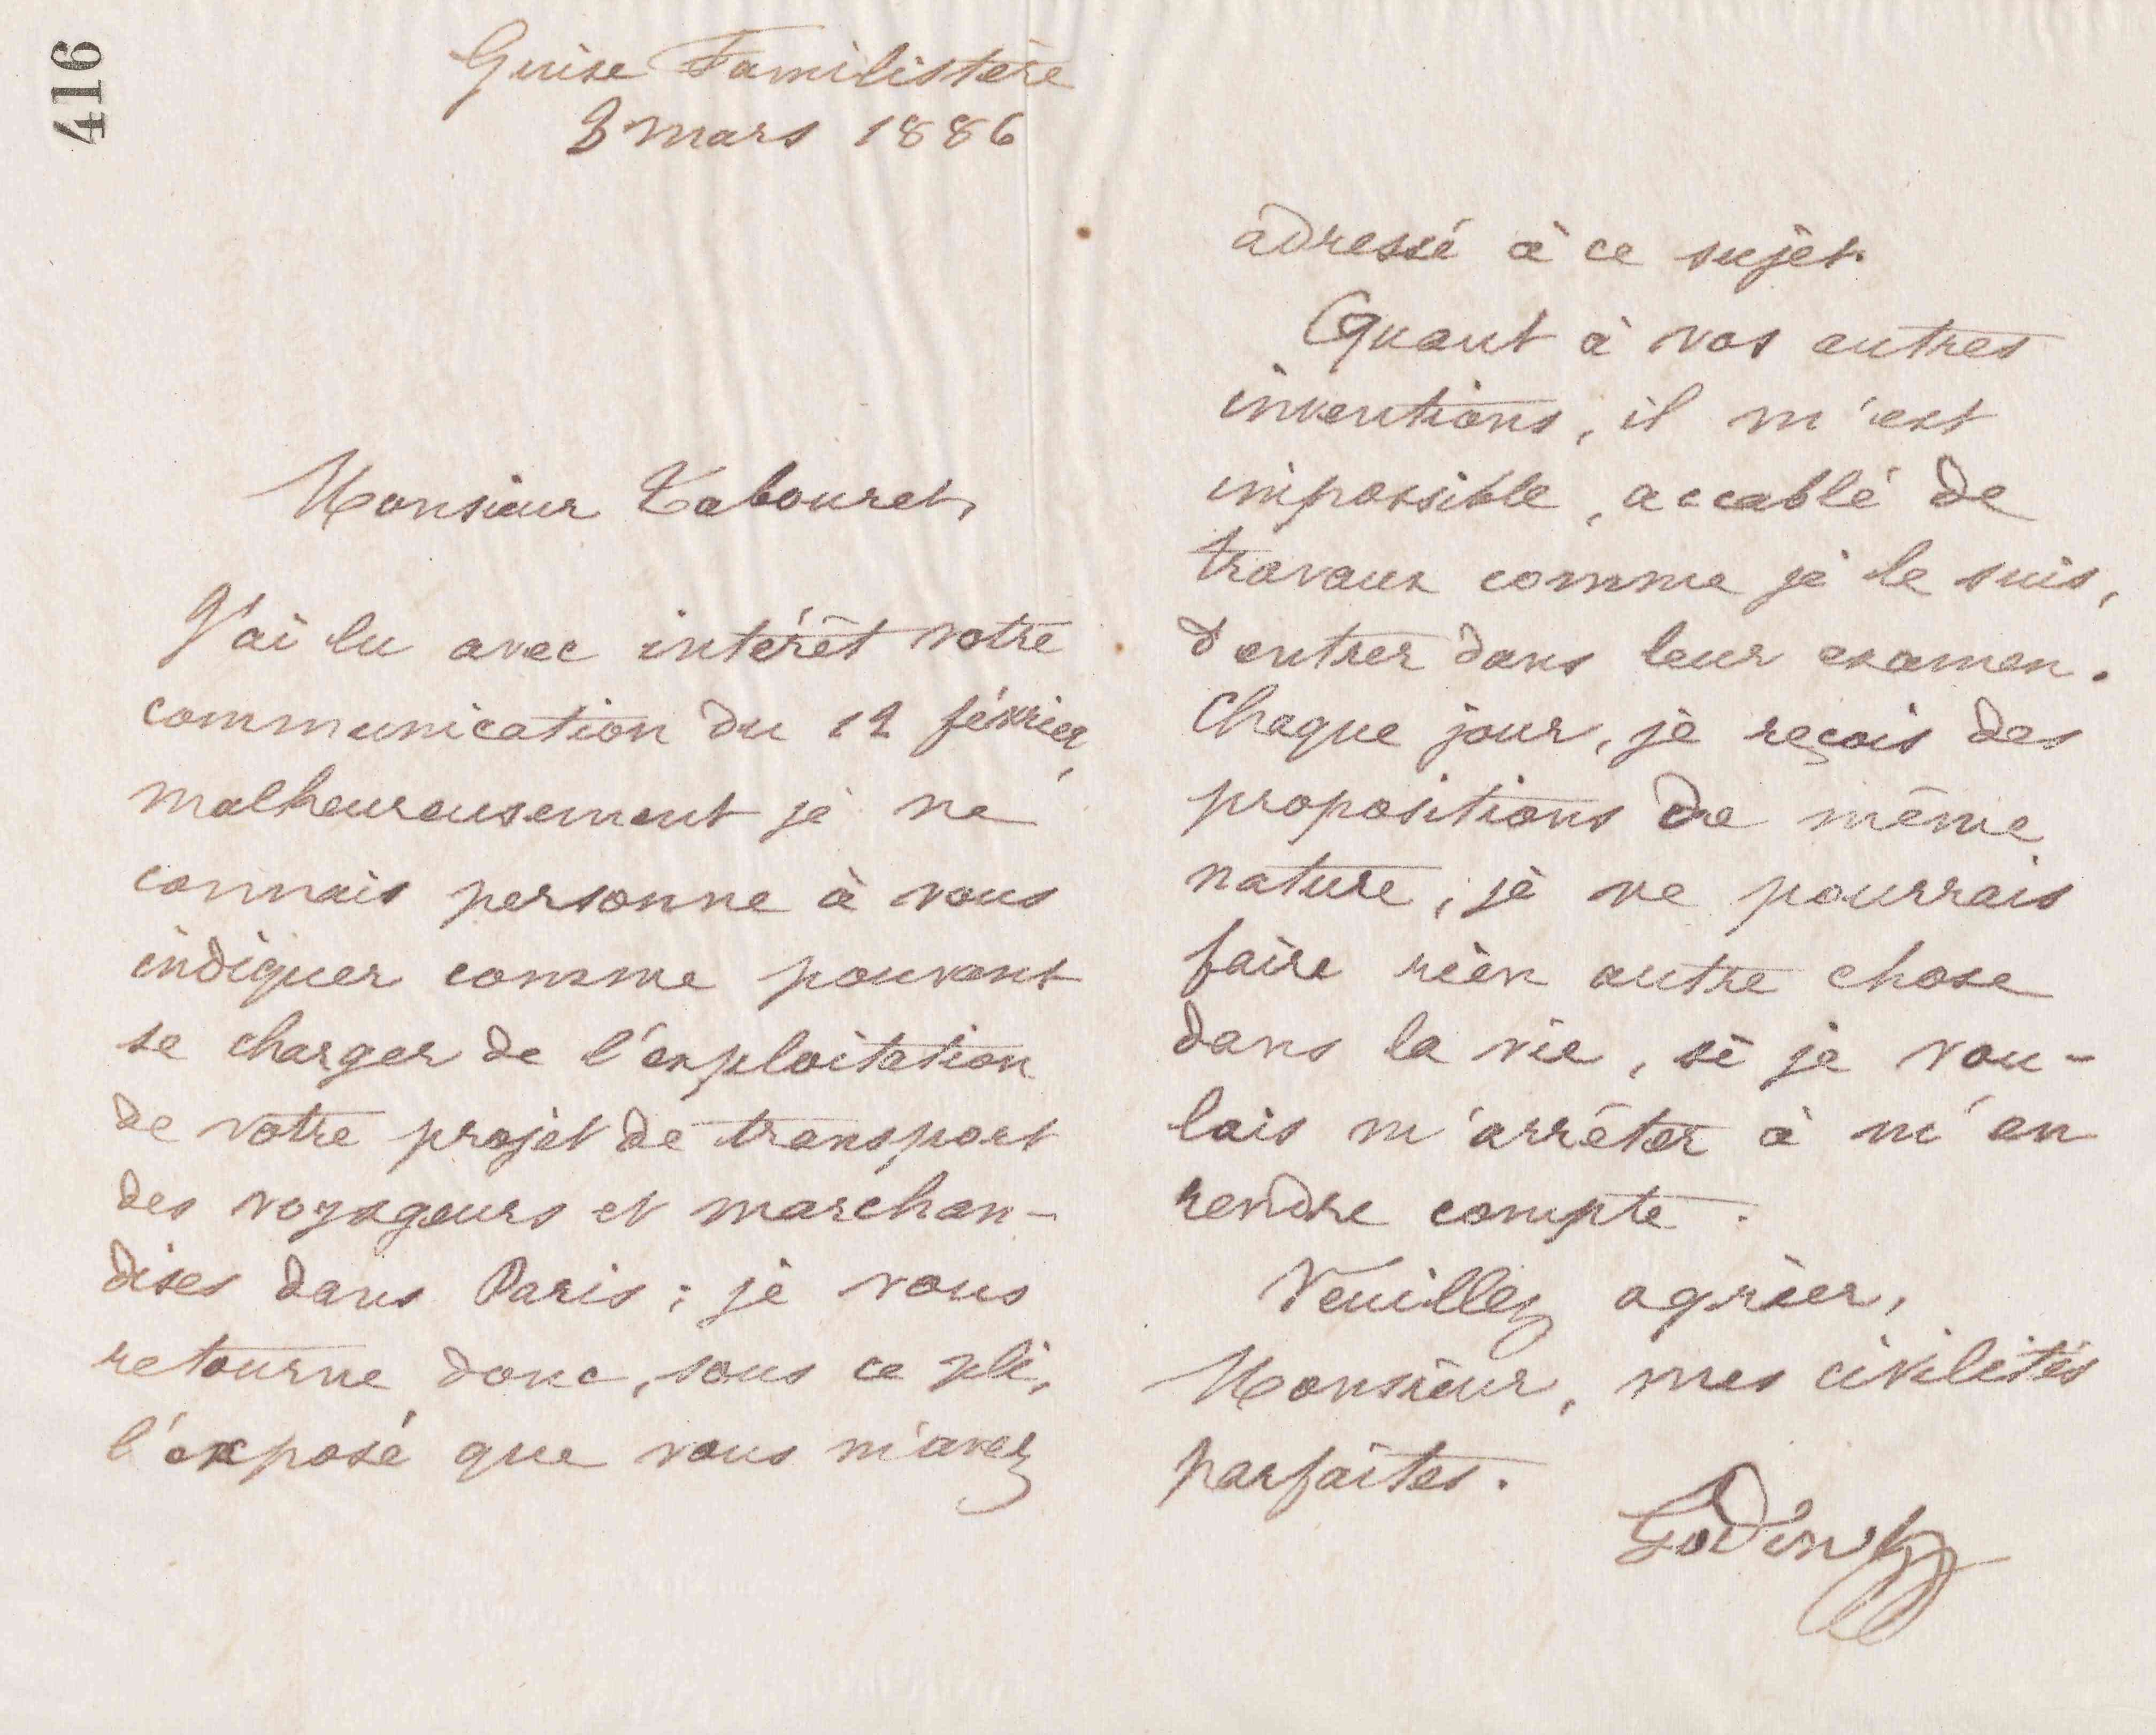 416
Guise Familistère
3 mars 1886
Monsieur Tabouret,
J'ai lu avec intérêt votre
communication du 12 février,
malheureusement je ne
connais personne à vous
indiquer comme pouvant
se charger de l'exploitation
de votre projet de transport
des voyageurs et marchan-
dises dans Paris ; je vous
retourne donc, sous ce pli,
l'exposé que vous m'avez
adressé à ce sujet.
Quant à vos autres
inventions, il m'est
impossible, accablé de
travaux comme je le suis,
d'entrer dans leur examen.
Chaque jour, je reçois des
propositions de même
nature ; je ne pourrais
faire rien autre chose
dans la vie, si je vou-
lais m'arrêter à m'en
rendre compte.
Veuillez agréer,
Monsieur, mes civilités
parfaites.
Godin